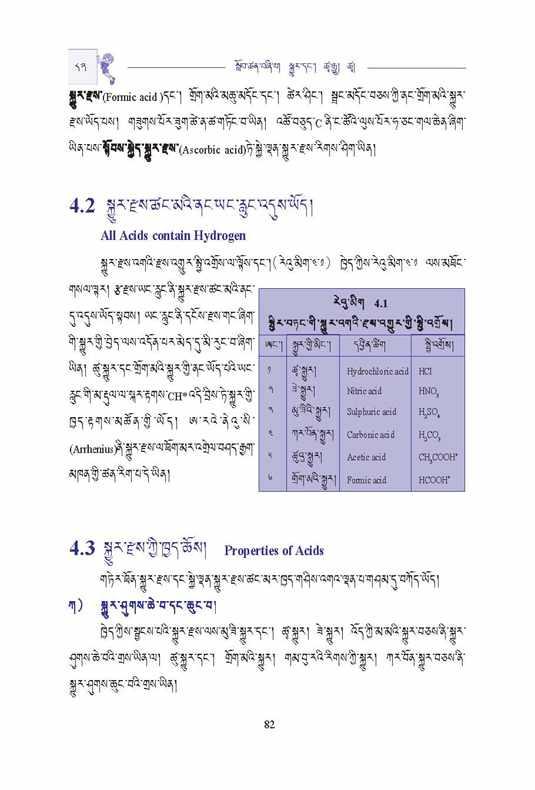 ༨༢ སློབ་ཚན་བཞི་པ། སྐྱུར་དང་། ཚྭ་རྒྱུ། ཚྭ།
སྐྱུར་རྫས་(Formic acid )དང་། གྲོག་མའི་མཆུ་མདོང་དང་། ཚེར་ཤིང་། སྦྲང་མདོང་བཅས་ཀྱི་ནང་གྲོག་མའི་སྐྱུར་
རྫས་ཡོད་པས། གཟུགས་པོར་ཟུག་ཚ་ན་ཚ་གཏོང་བ་ཡིན། འཚོ་བཅུད་C ནི་ང་ཚོའི་ལུས་པོར་ཧ་ཅང་གལ་ཆེན་ཞིག་
ཡིན་པས་སྟོབས་སྐྱེད་སྐྱུར་རྫས་(Ascorbic acid)ཏེ་སྐྱེ་ལྡན་སྐྱུར་རྫས་རིགས་ཤིག་ཡིན།
4.2 སྐྱུར་རྫས་ཚང་མའི་ནང་ཡང་རླུང་འདུས་ཡོད།
All Acids contain Hydrogen
སྐྱུར་རྫས་འགའི་རྫས་འགྱུར་སྤྱི་འགྲོས་ལ་ལྟོས་དང་། ( རེའུ་མིག་༤་༡ ) ཁྱེད་ཀྱིས་རེའུ་མིག་༤་༡ ལས་མཐོང་
གསལ་ལྟར། རྩ་རྫས་ཡང་རླུང་ནི་སྐྱུར་རྫས་ཚང་མའི་ནང་
དུ་འདུས་ཡོད་སྟབས། ཡང་རླུང་ནི་དངོས་རྫས་གང་ཞིག་
གི་སྐྱུར་གྱི་བྱེད་ལས་འདོན་པར་མེད་དུ་མི་རུང་བ་ཞིག་
ཡིན། ཚྭ་སྐྱུར་དང་གྲོག་མའི་སྐྱུར་གྱི་ནང་ཡོད་པའི་ཡང་
རླུང་གི་མ་རྡུལ་ལ་སྐར་རྟགས་"H*"འདི་བྲིས་ཏེ་སྐྱུར་གྱི་
ཁྱད་རྟགས་མཚོན་གྱི་ཡོད། ཨ་རའེ་ནེའུ་སི་
(Arrhenius)ནི་སྐྱུར་རྫས་ལ་ཐོག་མར་འགྲེལ་བཤད་རྒྱག་
མཁན་གྱི་ཚན་རིག་པ་དེ་ཡིན།
རེའུ་མིག 4.1
སྤྱིར་བཏང་གི་སྐྱུར་འགའི་རྫས་འགྱུར་གྱི་སྤྱི་འགྲོས།
ཨང་། སྐྱུར་གྱི་མིང་། དབྱིན་ཚིག སྤྱི་འགྲོས།
༡ ཚྭ་སྐྱུར། Hydrochloric acid HCl
༢ ཟེ་སྐྱུར། Nitric acid HNO₃
༣ མུ་ཟིའི་སྐྱུར། Sulphuric acid H₂SO₄
༤ ཀར་པོན་སྐྱུར། Carbonic acid H₂CO₃
༥ ཚུའུ་སྐྱུར། Acetic acid CH₃COOH*
༦ གྲོག་མའི་སྐྱུར། Formic acid HCOOH*
4.3 སྐྱུར་རྫས་ཀྱི་ཁྱད་ཆོས། Properties of Acids
གཏེར་ཐོན་སྐྱུར་རྫས་དང་སྐྱེ་ལྡན་སྐྱུར་རྫས་ཚང་མར་ཁྱད་གཤིས་འགའ་ལྡན་པ་གཤམ་དུ་བཀོད་ཡོད།
ཀ) སྐྱུར་ཤུགས་ཆེ་བ་དང་ཆུང་བ།
ཁྱེད་ཀྱིས་སྦྱངས་པའི་སྐྱུར་རྫས་ལས་མུ་ཟི་སྐྱུར་དང་། ཚྭ་སྐྱུར། ཟེ་སྐྱུར། འོད་ཀྱི་མ་མའི་སྐྱུར་བཅས་ནི་སྐྱུར་
ཤུགས་ཆེ་བའི་གྲས་ཡིན་ལ། ཚུ་སྐྱུར་དང་། གྲོག་མའི་སྐྱུར། གམ་བུ་རའི་རིགས་ཀྱི་སྐྱུར། ཀར་པོན་སྐྱུར་བཅས་ནི་
སྐྱུར་ཤུགས་ཆུང་བའི་གྲས་ཡིན།
82